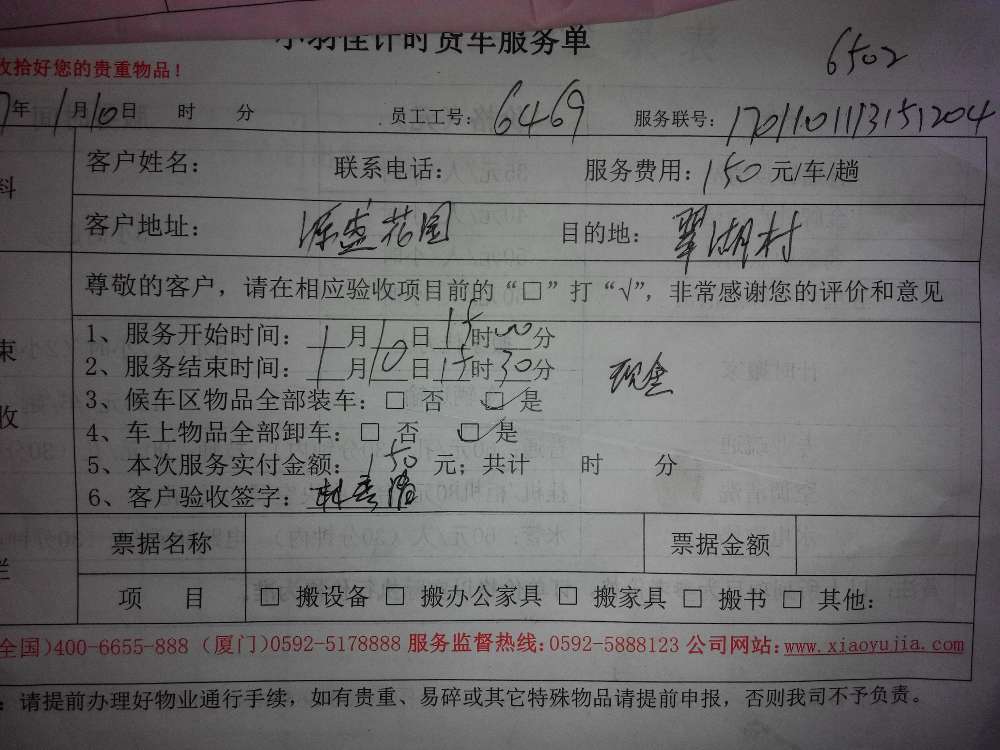 小羽佳计时货车服务单
6502
收拾好您的贵重物品！
7年1月10日 时 分 员工工号：6469 服务联号：170110113151204
料
客户姓名： 联系电话： 服务费用：150元/车/趟
客户地址：源盛花园 目的地：翠湖村
尊敬的客户，请在相应验收项目前的“□”打“√”，非常感谢您的评价和意见
束
收
1、服务开始时间：1月10日15时00分
2、服务结束时间：1月10日15时30分 现金
3、候车区物品全部装车：□ 否 ☑ 是
4、车上物品全部卸车：□ 否 ☑ 是
5、本次服务实付金额：150元；共计 时 分
6、客户验收签字：
栏
票据名称 票据金额
项 目 □ 搬设备 □ 搬办公家具 □ 搬家具 □ 搬书 □ 其他：
全国)400-6655-888 (厦门)0592-5178888 服务监督热线:0592-5888123 公司网站:www.xiaoyujia.com
：请提前办理好物业通行手续，如有贵重、易碎或其它特殊物品请提前申报，否则我司不予负责。